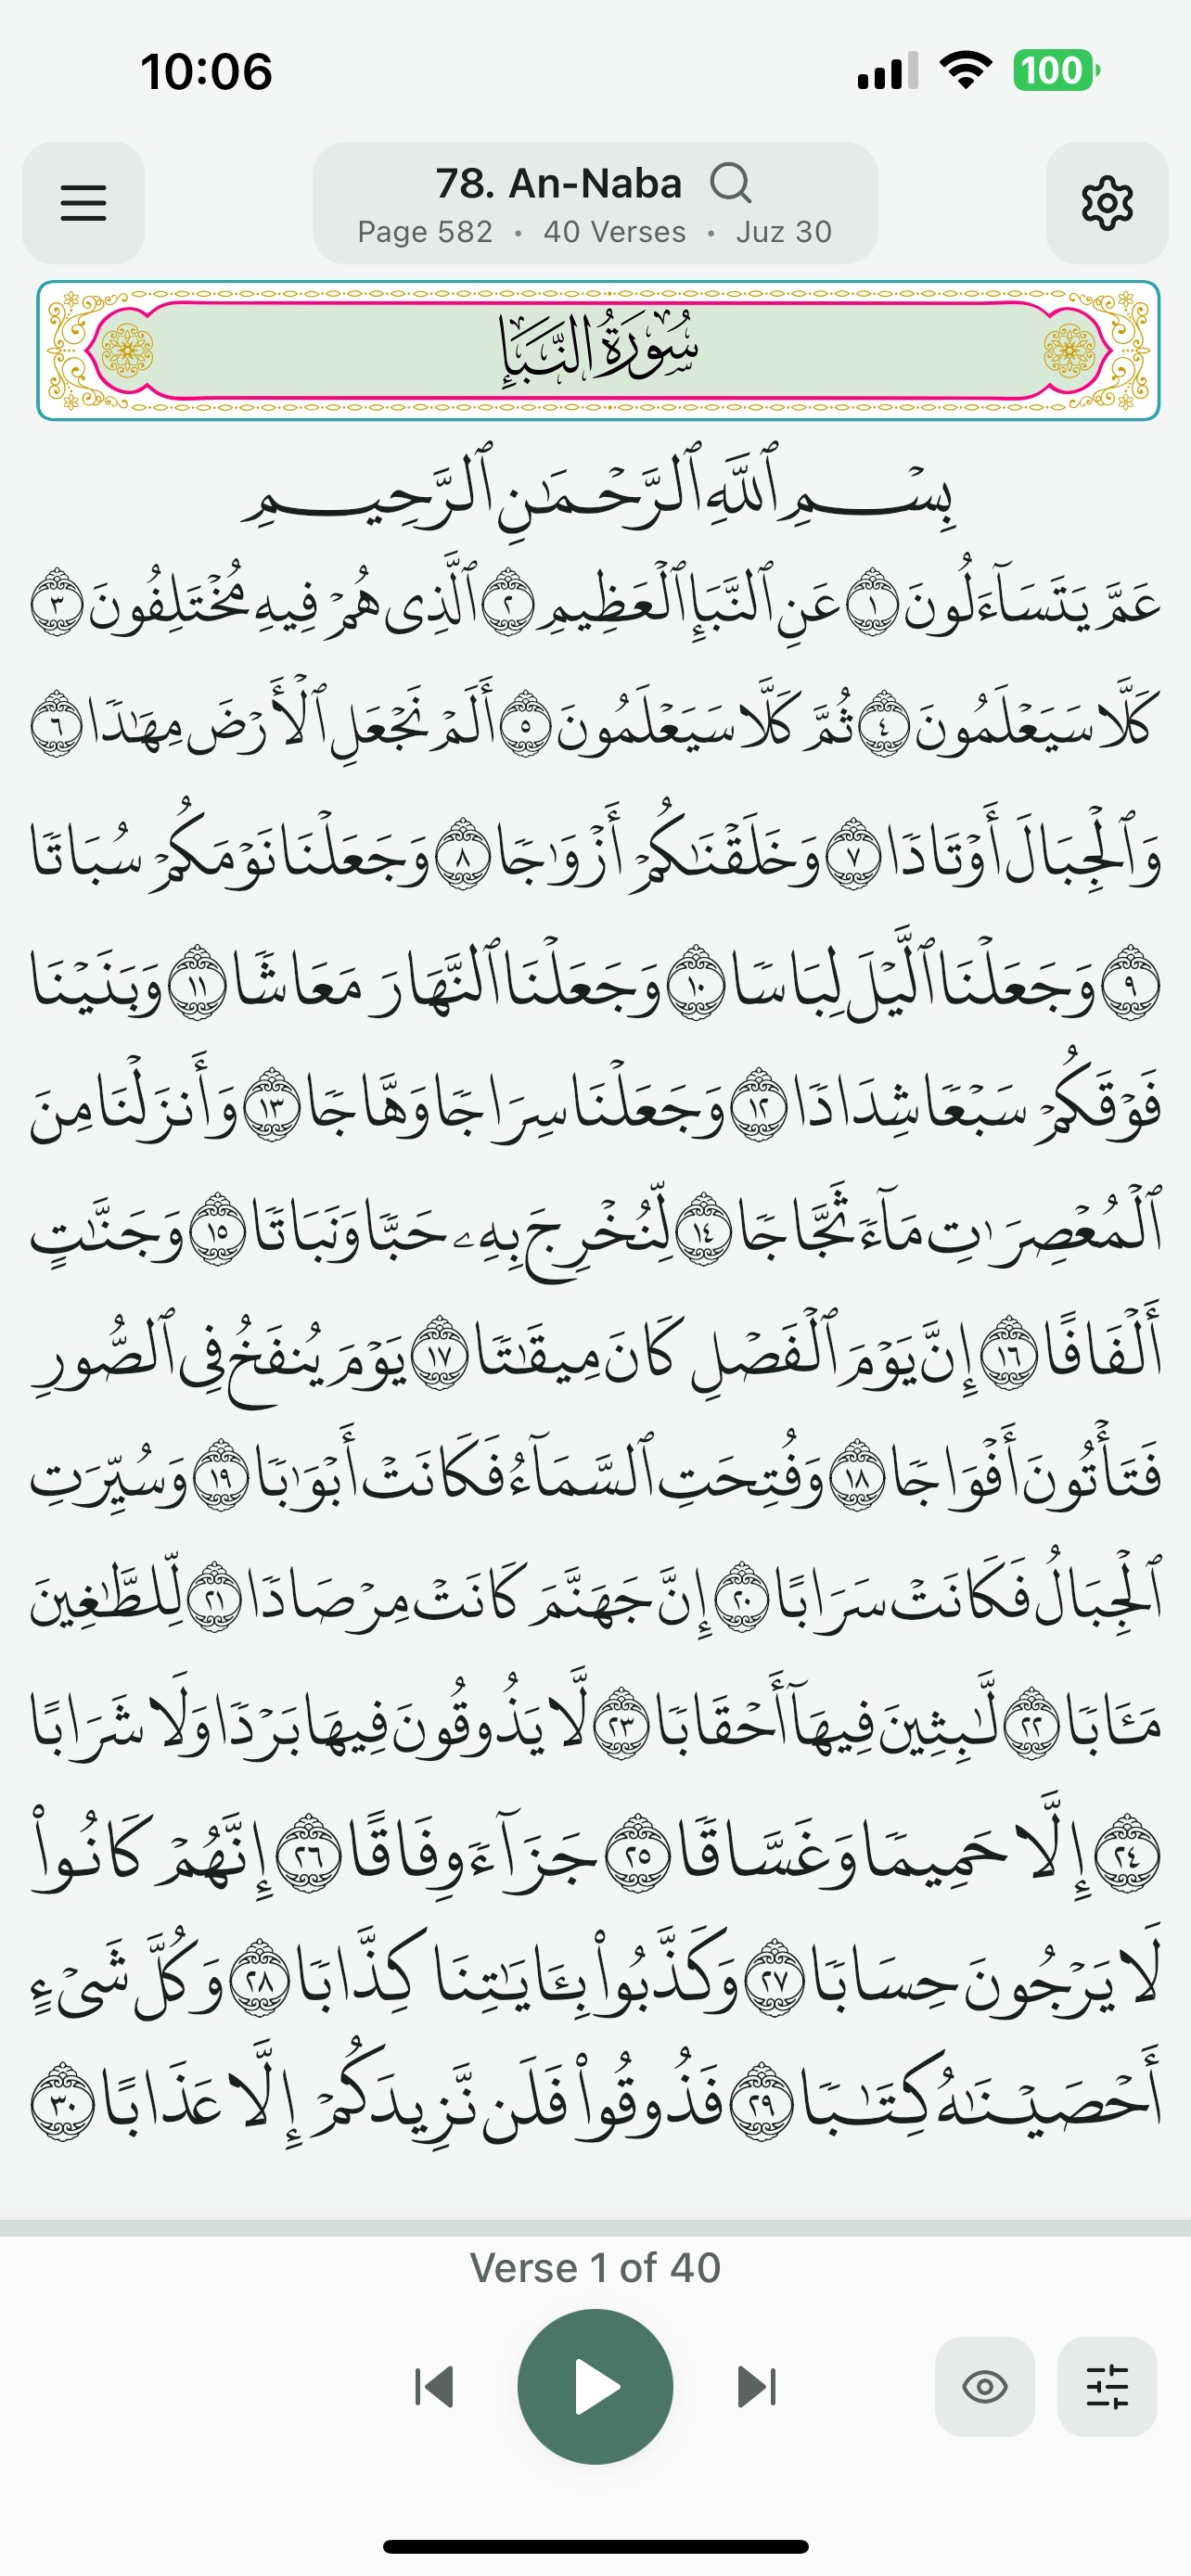 10:06
100
78. An-Naba
Page 582 • 40 Verses • Juz 30
سُورَةُ النَّبَإِ
بِسۡمِ ٱللَّهِ ٱلرَّحۡمَٰنِ ٱلرَّحِيمِ
عَمَّ يَتَسَآءَلُونَ ١ عَنِ ٱلنَّبَإِ ٱلۡعَظِيمِ ٢ ٱلَّذِى هُمۡ فِيهِ مُخۡتَلِفُونَ ٣
كَلَّا سَيَعۡلَمُونَ ٤ ثُمَّ كَلَّا سَيَعۡلَمُونَ ٥ أَلَمۡ نَجۡعَلِ ٱلۡأَرۡضَ مِهَٰدٗا ٦
وَٱلۡجِبَالَ أَوۡتَادٗا ٧ وَخَلَقۡنَٰكُمۡ أَزۡوَٰجٗا ٨ وَجَعَلۡنَا نَوۡمَكُمۡ سُبَاتٗا
٩ وَجَعَلۡنَا ٱلَّيۡلَ لِبَاسٗا ١٠ وَجَعَلۡنَا ٱلنَّهَارَ مَعَاشٗا ١١ وَبَنَيۡنَا
فَوۡقَكُمۡ سَبۡعٗا شِدَادٗا ١٢ وَجَعَلۡنَا سِرَاجٗا وَهَّاجٗا ١٣ وَأَنزَلۡنَا مِنَ
ٱلۡمُعۡصِرَٰتِ مَآءٗ ثَجَّاجٗا ١٤ لِّنُخۡرِجَ بِهِۦ حَبّٗا وَنَبَاتٗا ١٥ وَجَنَّٰتٍ
أَلۡفَافًا ١٦ إِنَّ يَوۡمَ ٱلۡفَصۡلِ كَانَ مِيقَٰتٗا ١٧ يَوۡمَ يُنفَخُ فِى ٱلصُّورِ
فَتَأۡتُونَ أَفۡوَاجٗا ١٨ وَفُتِحَتِ ٱلسَّمَآءُ فَكَانَتۡ أَبۡوَٰبٗا ١٩ وَسُيِّرَتِ
ٱلۡجِبَالُ فَكَانَتۡ سَرَابًا ٢٠ إِنَّ جَهَنَّمَ كَانَتۡ مِرۡصَادٗا ٢١ لِّلطَّٰغِينَ
مَـَٔابٗا ٢٢ لَّٰبِثِينَ فِيهَآ أَحۡقَابٗا ٢٣ لَّا يَذُوقُونَ فِيهَا بَرۡدٗا وَلَا شَرَابًا
٢٤ إِلَّا حَمِيمٗا وَغَسَّاقٗا ٢٥ جَزَآءٗ وِفَاقًا ٢٦ إِنَّهُمۡ كَانُواْ
لَا يَرۡجُونَ حِسَابٗا ٢٧ وَكَذَّبُواْ بِـَٔايَٰتِنَا كِذَّابٗا ٢٨ وَكُلَّ شَىۡءٍ
أَحۡصَيۡنَٰهُ كِتَٰبٗا ٢٩ فَذُوقُواْ فَلَن نَّزِيدَكُمۡ إِلَّا عَذَابًا ٣٠
Verse 1 of 40